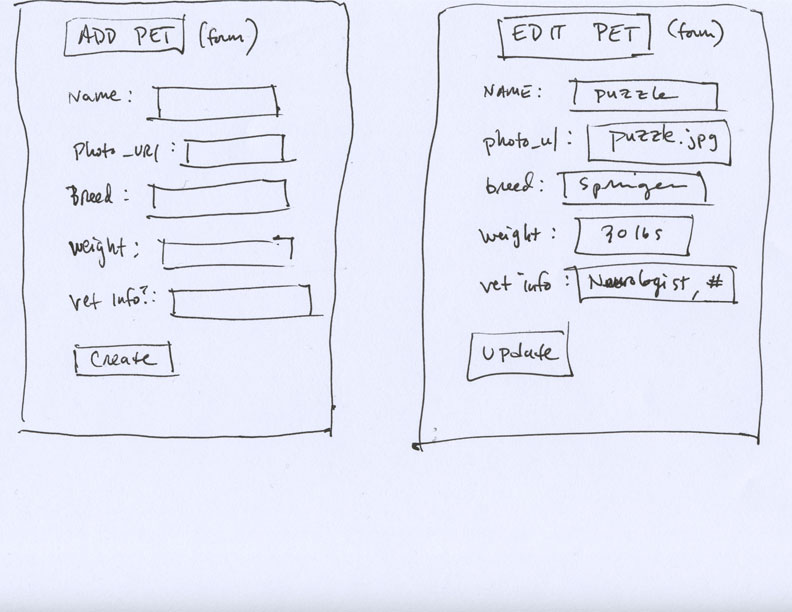 ADD PET (form)
Name:
Photo_url:
Breed:
weight:
vet info?:
Create
EDIT PET (form)
NAME: puzzle
photo_ul: puzzle.jpg
breed: Springer
weight: 30 lbs
vet info: Neurologist, #
Update